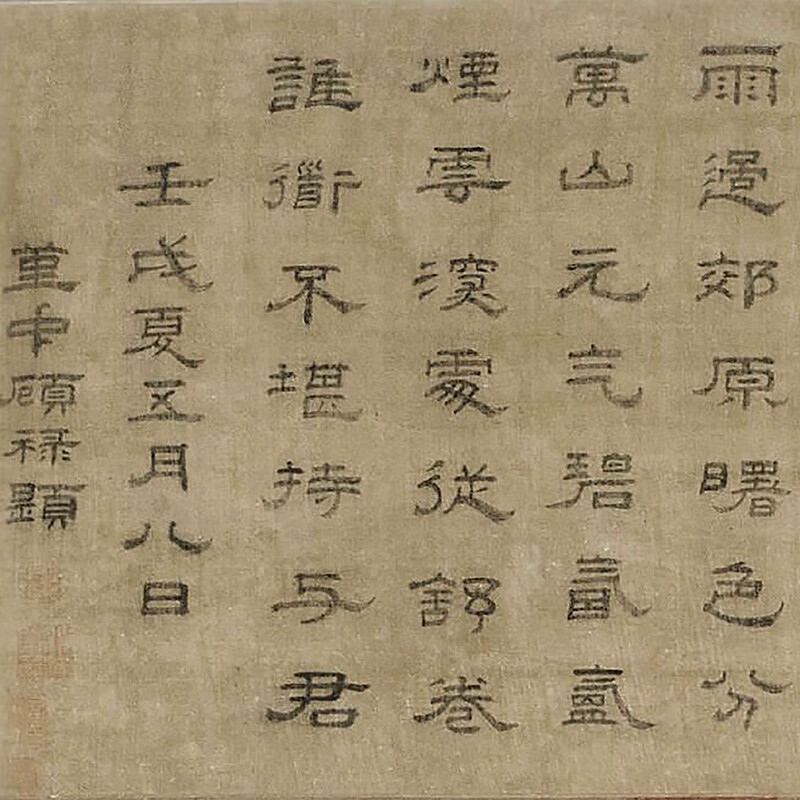 雨過郊原曙色分
萬山元气碧氤氳
煙雲深處從舒卷
誰衟不堪持与君
壬戌夏五月八日
堇中顧祿題